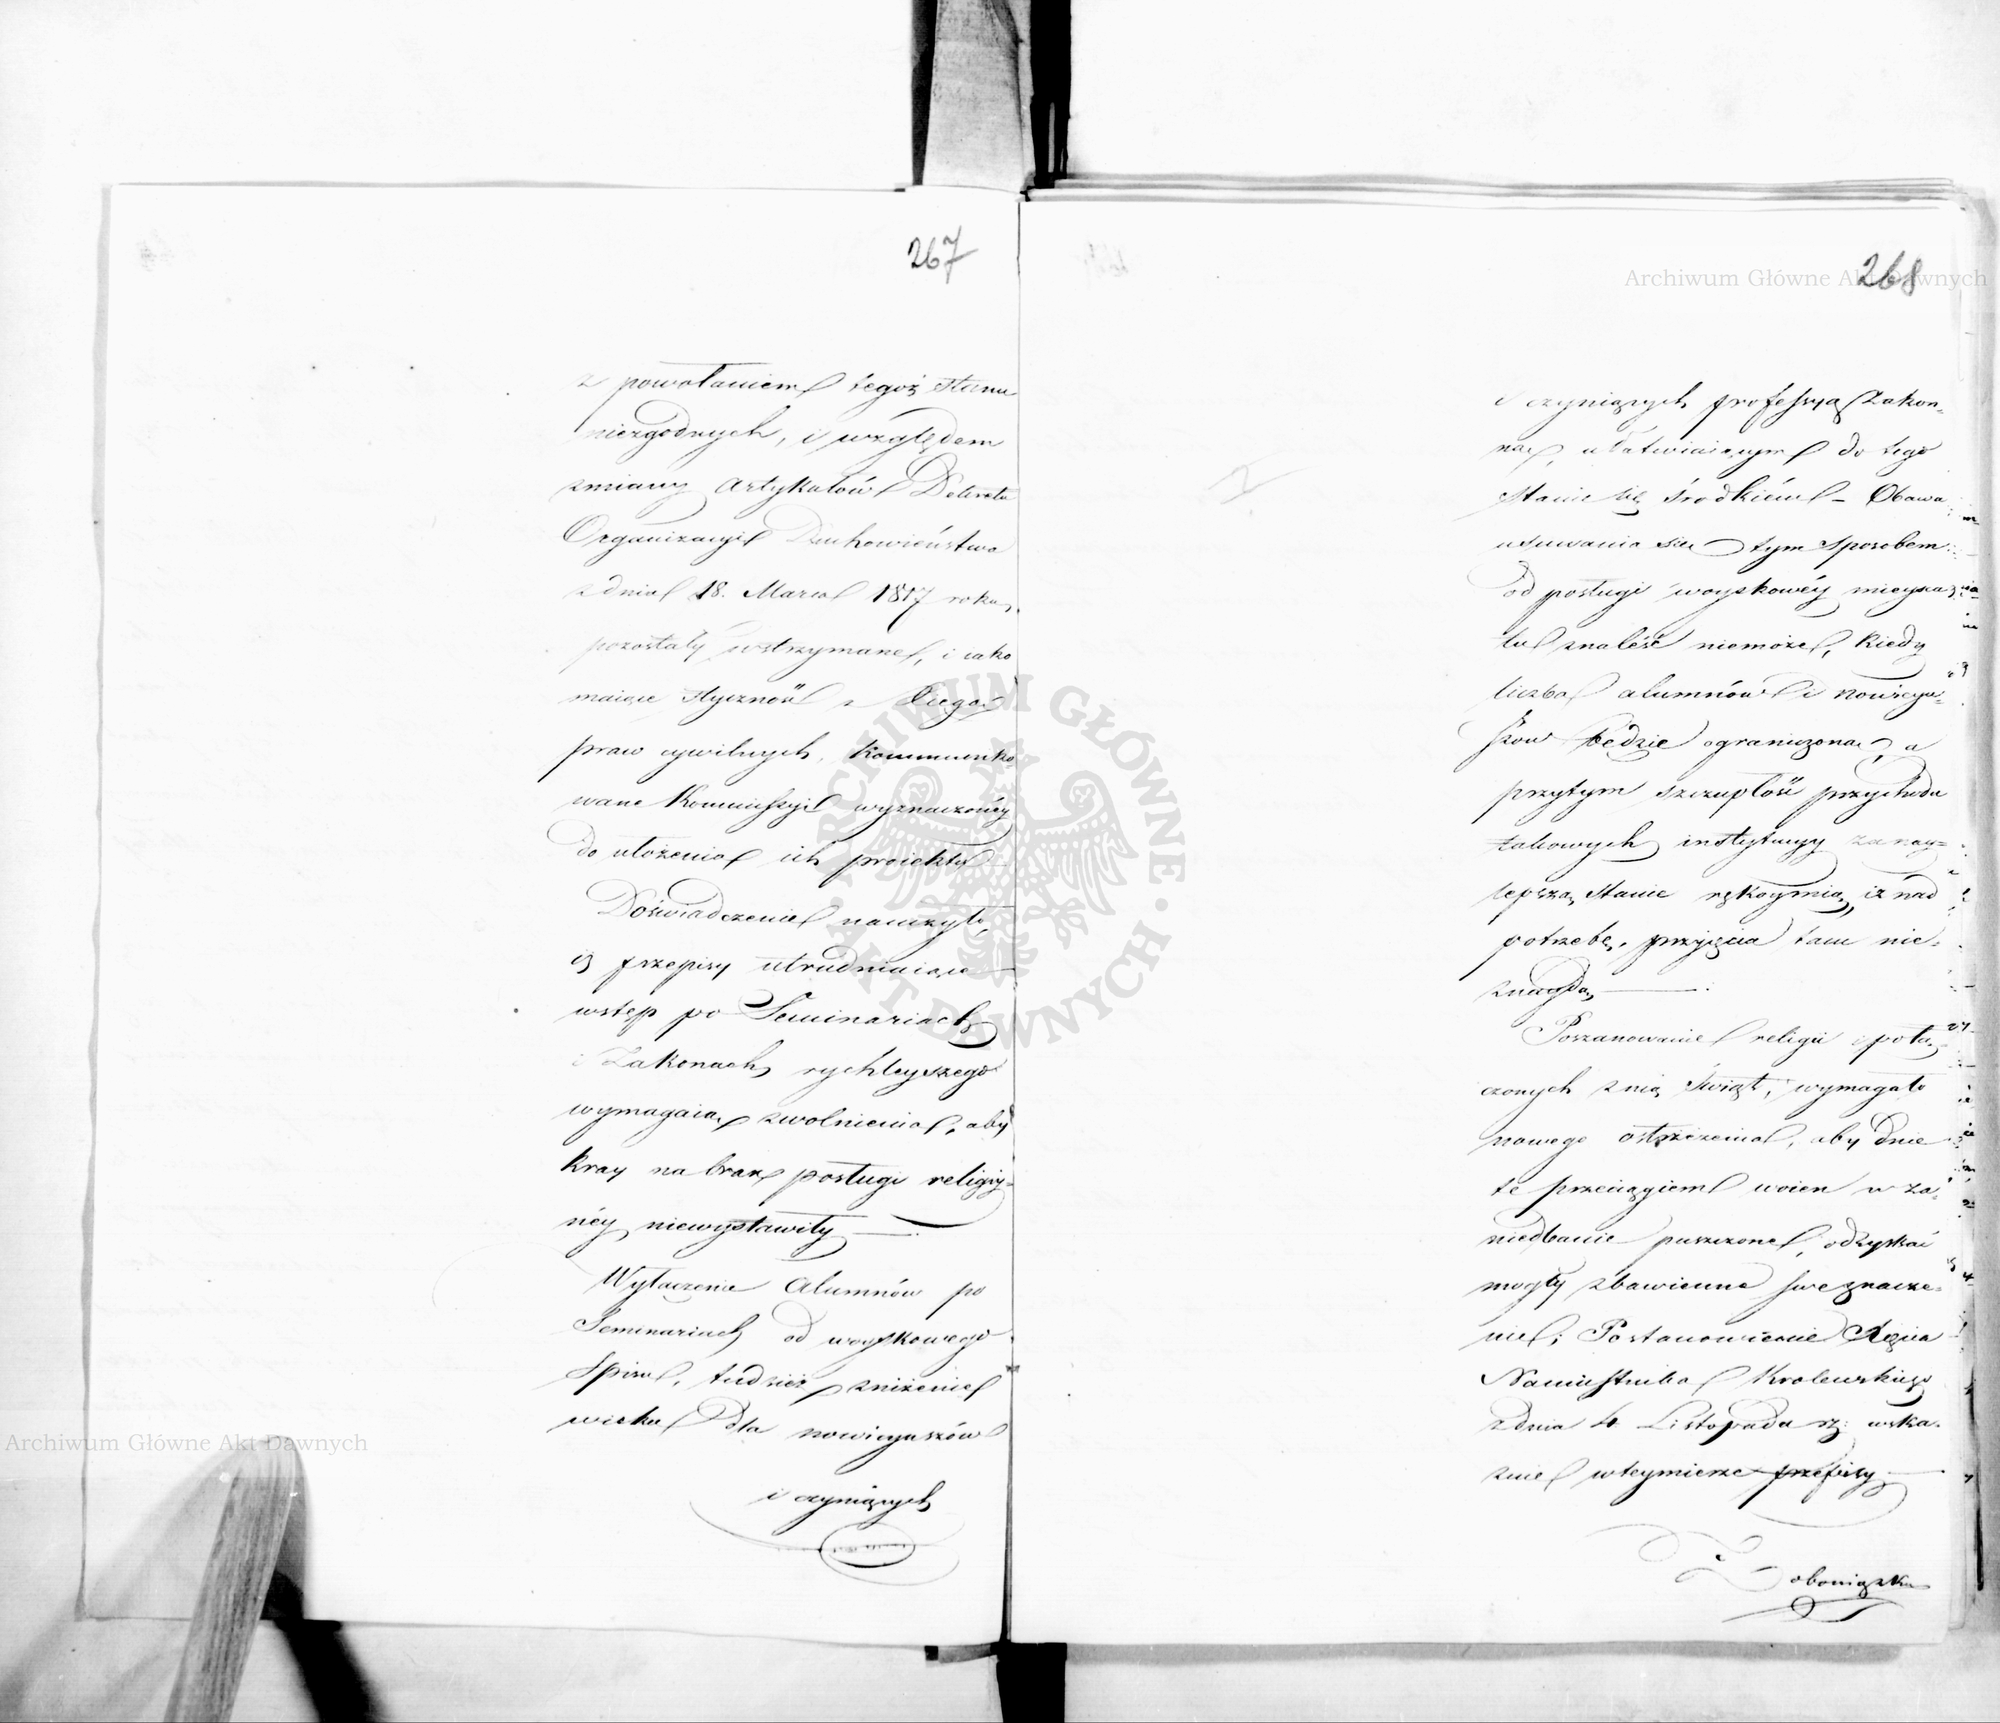 267
z powołaniem tegoż stanu
niezgodnych, i względem
zmiany Artykułów Dekretu
Organizacyi Duchowieństwa
z dnia 18. Marca 1817 roku,
pozostały wstrzymane, i iako
maiące styczność z Xięgą
praw cywilnych, kommuniko-
wane Kommissyi wyznaczonéy
do ułożenia ich proiektu
Doświadczenie nauczyło,
iż przepisy utrudniaiące
wstęp po Seminariach
i Zakonach, rychleyszego
wymagaią zwolnienia, aby
kray na brak posługi religiy-
néy niewystawiły
Wyłączenie Alumnów po
Seminariach od woyskowego
Spisu, tudzież zniżenie
wieku dla nowicyuszów
i czyniących
268
i czyniących professyą Zakon-
ną, ułatwiaiącym do tego
stanie się środkiem – Obawa
usuwania się tym sposobem
od posługi woyskowéy mieysca
tu znaleść niemoże, kiedy
liczba alumnów i nowicyu-
szów będzie ograniczoną, a
przytym szczupłość przychodu
takowych instytucyy za nay-
lepszą stanie rękoymią, iż nad
potrzebę, przyjęcia tam nie-
znaydą
Poszanowanie religii i połą-
czonych z nią Swiąt, wymagało
nowego ostrzeżenia, aby dnie
te przeciągiem woien w za-
niedbanie puszczone, odzyskać
mogły zbawienne swe znacze-
nie; Postanowienie Xięcia
Namiestnika Krolewskiego
z dnia 4. Listopada rz: wska-
zuie wteymierze przepisy
Zobowiązku
Archiwum Główne Akt Dawnych
Archiwum Główne Akt Dawnych
ARCHIWUM GŁÓWNE · AKT DAWNYCH ·